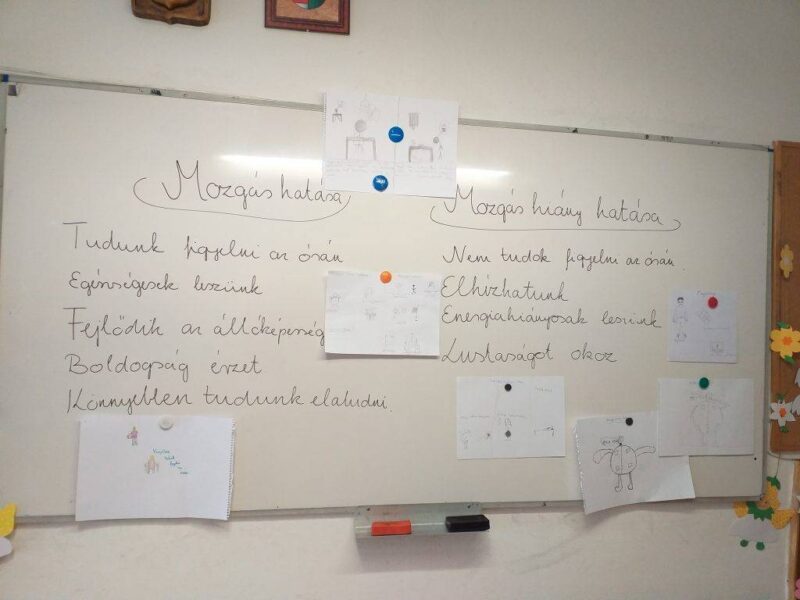 Mozgás hatása
Tudunk figyelni az órán
Egészségesek leszünk
Fejlődik az állóképesség
Boldogság érzet
Könnyebben tudunk elaludni.
Mozgás hiány hatása
Nem tudok figyelni az órán.
Elhízhatunk
Energiahiányosak leszünk
Lustaságot okoz